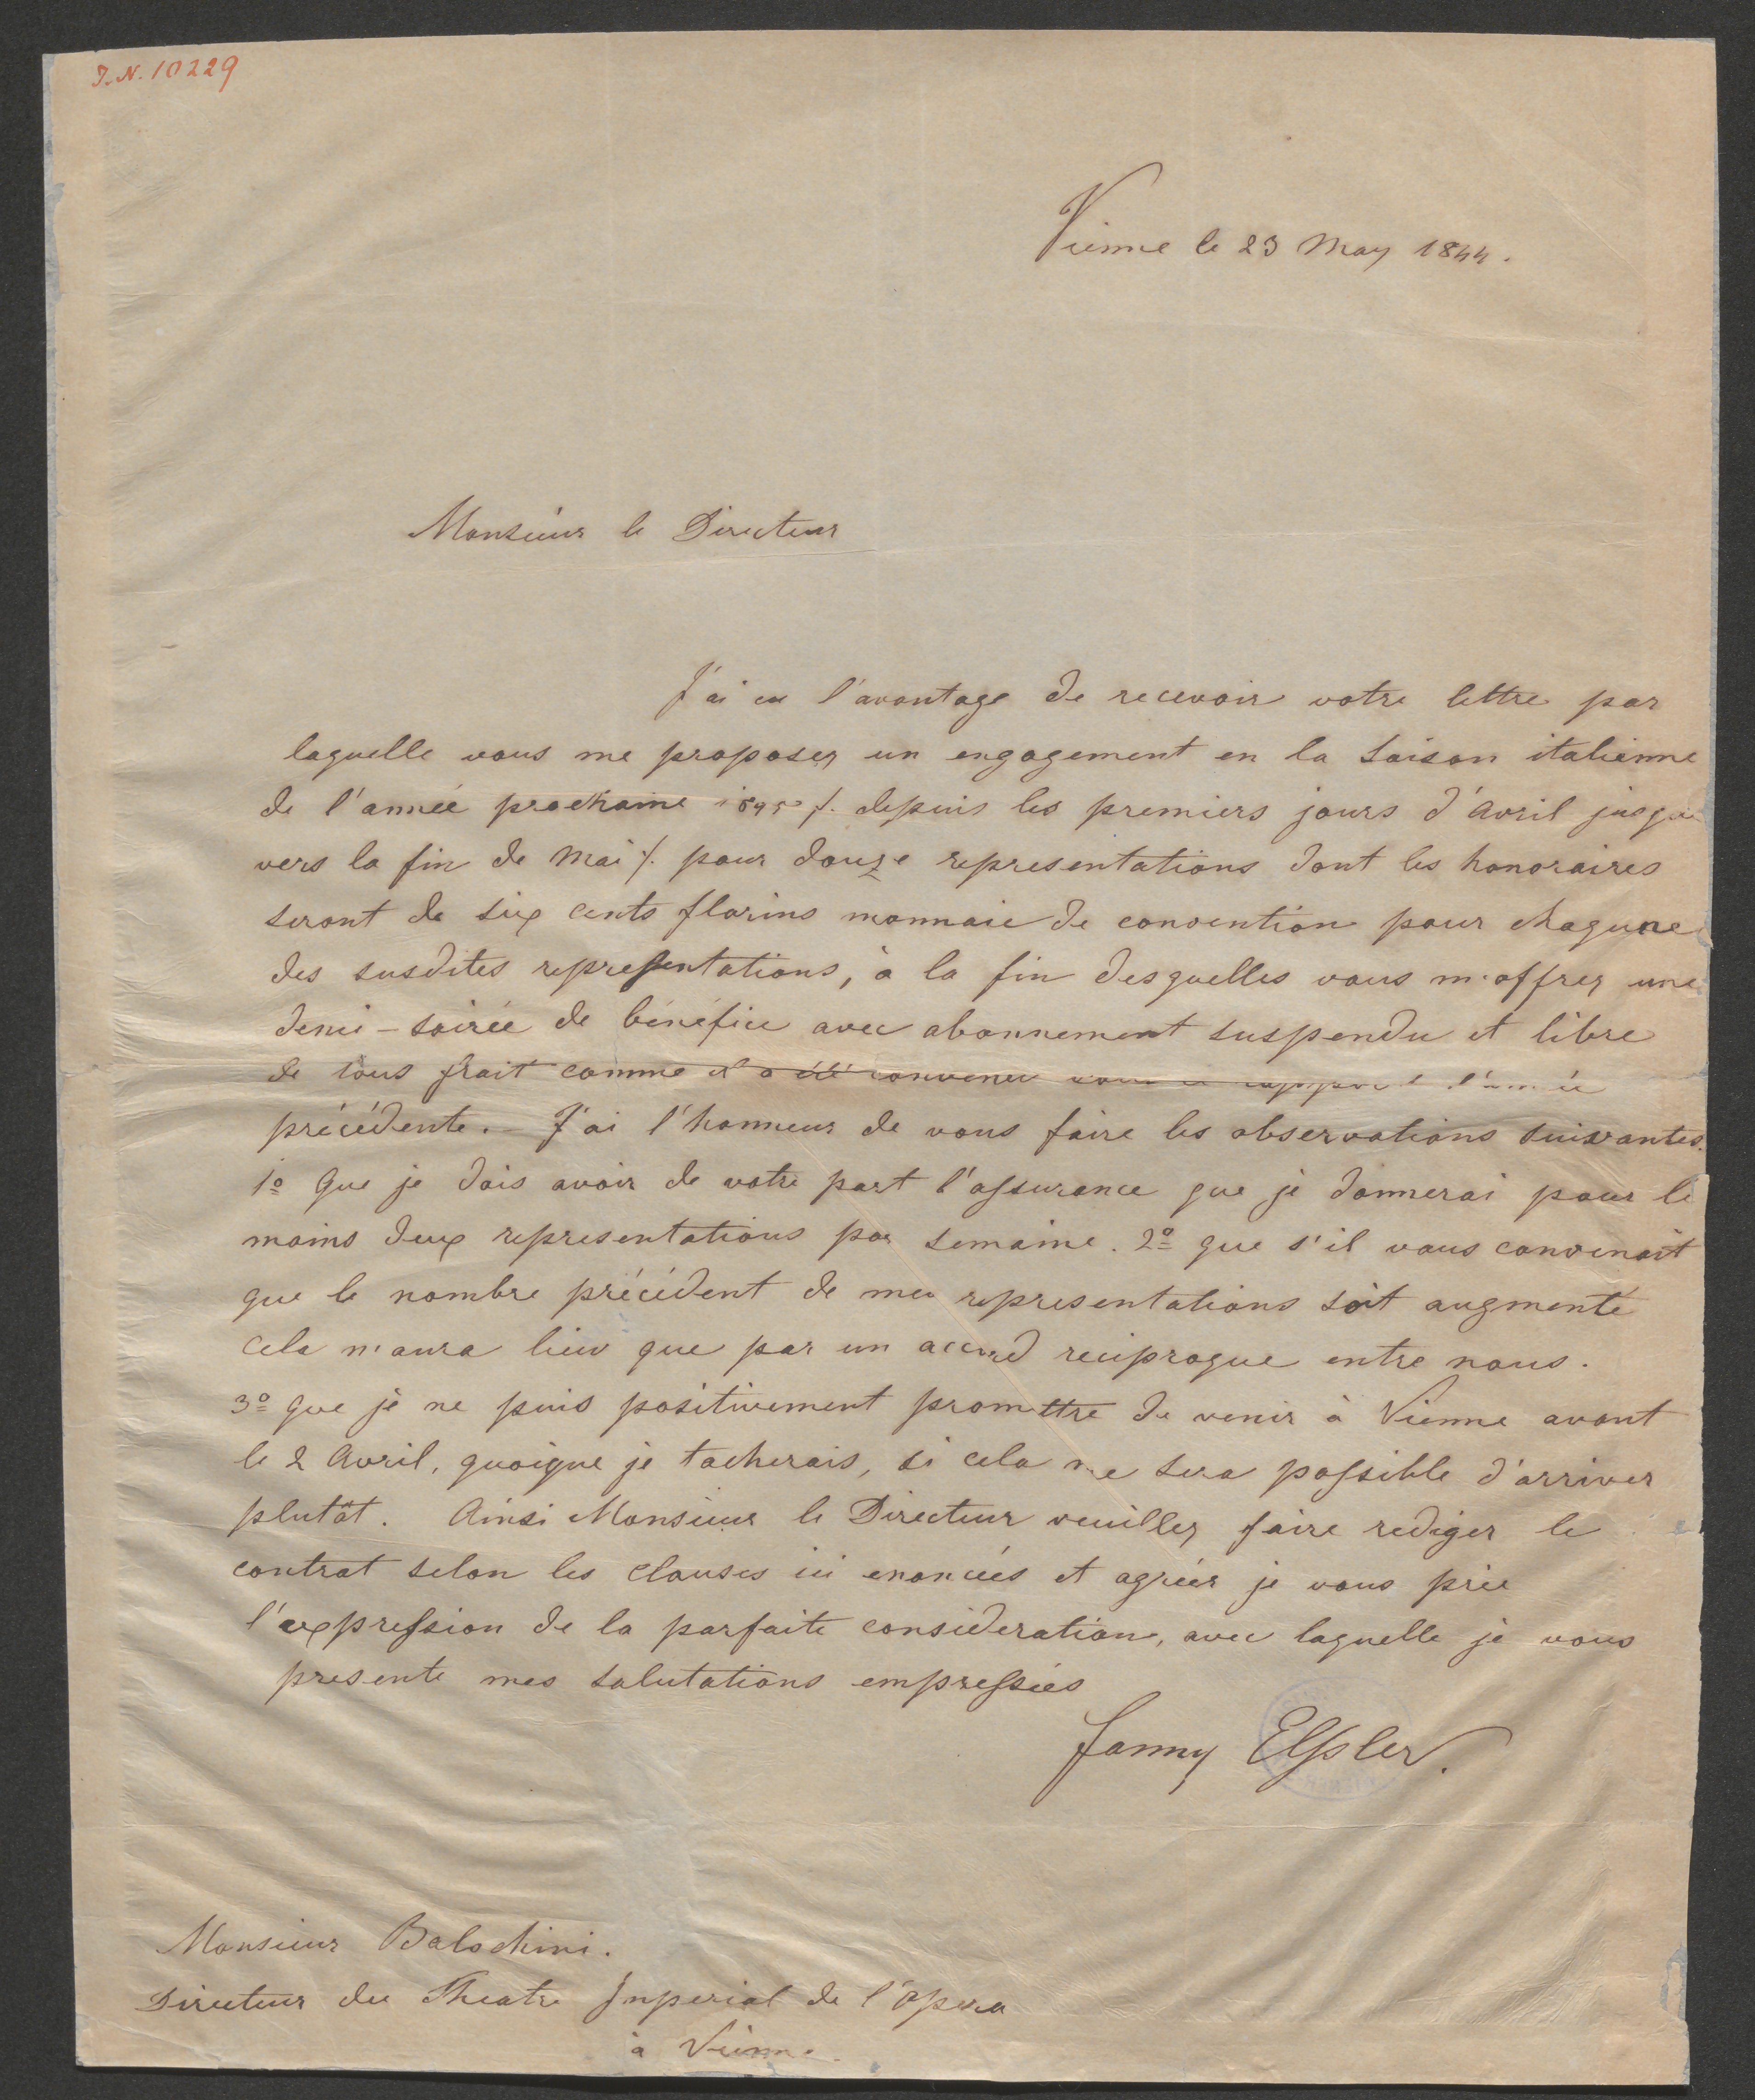 J.N. 10229
Vienne le 23 May 1844.
Monsieur le Directeur
J'ai eu l'avantage de recevoir votre lettre par
laquelle vous me proposez un engagement en la saison italienne
de l'année prochaine 1845 /. depuis les premiers jours d'Avril jusque
vers la fin de Mai /. pour douze representations dont les honoraires
seront de six cents florins monnaie de convention pour chaqune
des susdites representations, à la fin desquelles vous m'offrez une
demi-soirée de bénéfice avec abonnement suspendu et libre
de tous frait comme il a été convenu l'année
précédente. J'ai l'honneur de vous faire les observations suivantes.
1º Que je dois avoir de votre part l'assurance que je donnerai pour le
moins deux representations par semaine. 2º que s'il vous convenait
que le nombre précédent de mes representations soit augmenté
cela n'aura lieu que par un accord reciproque entre nous.
3º que je ne puis positivement promettre de venir à Vienne avant
le 2 Avril, quoique je tacherais, si cela me sera possible d'arriver
plutôt. Ainsi Monsieur le Directeur veuillez faire rediger le
contrat selon les clauses ici enoncées et agréer je vous prie
l'expression de la parfaite consideration, avec laquelle je vous
presente mes salutations empressées
Fanny Elssler.
Monsieur Balochini.
Directeur du Theatre Inperial de l'Opera
à Vienne.